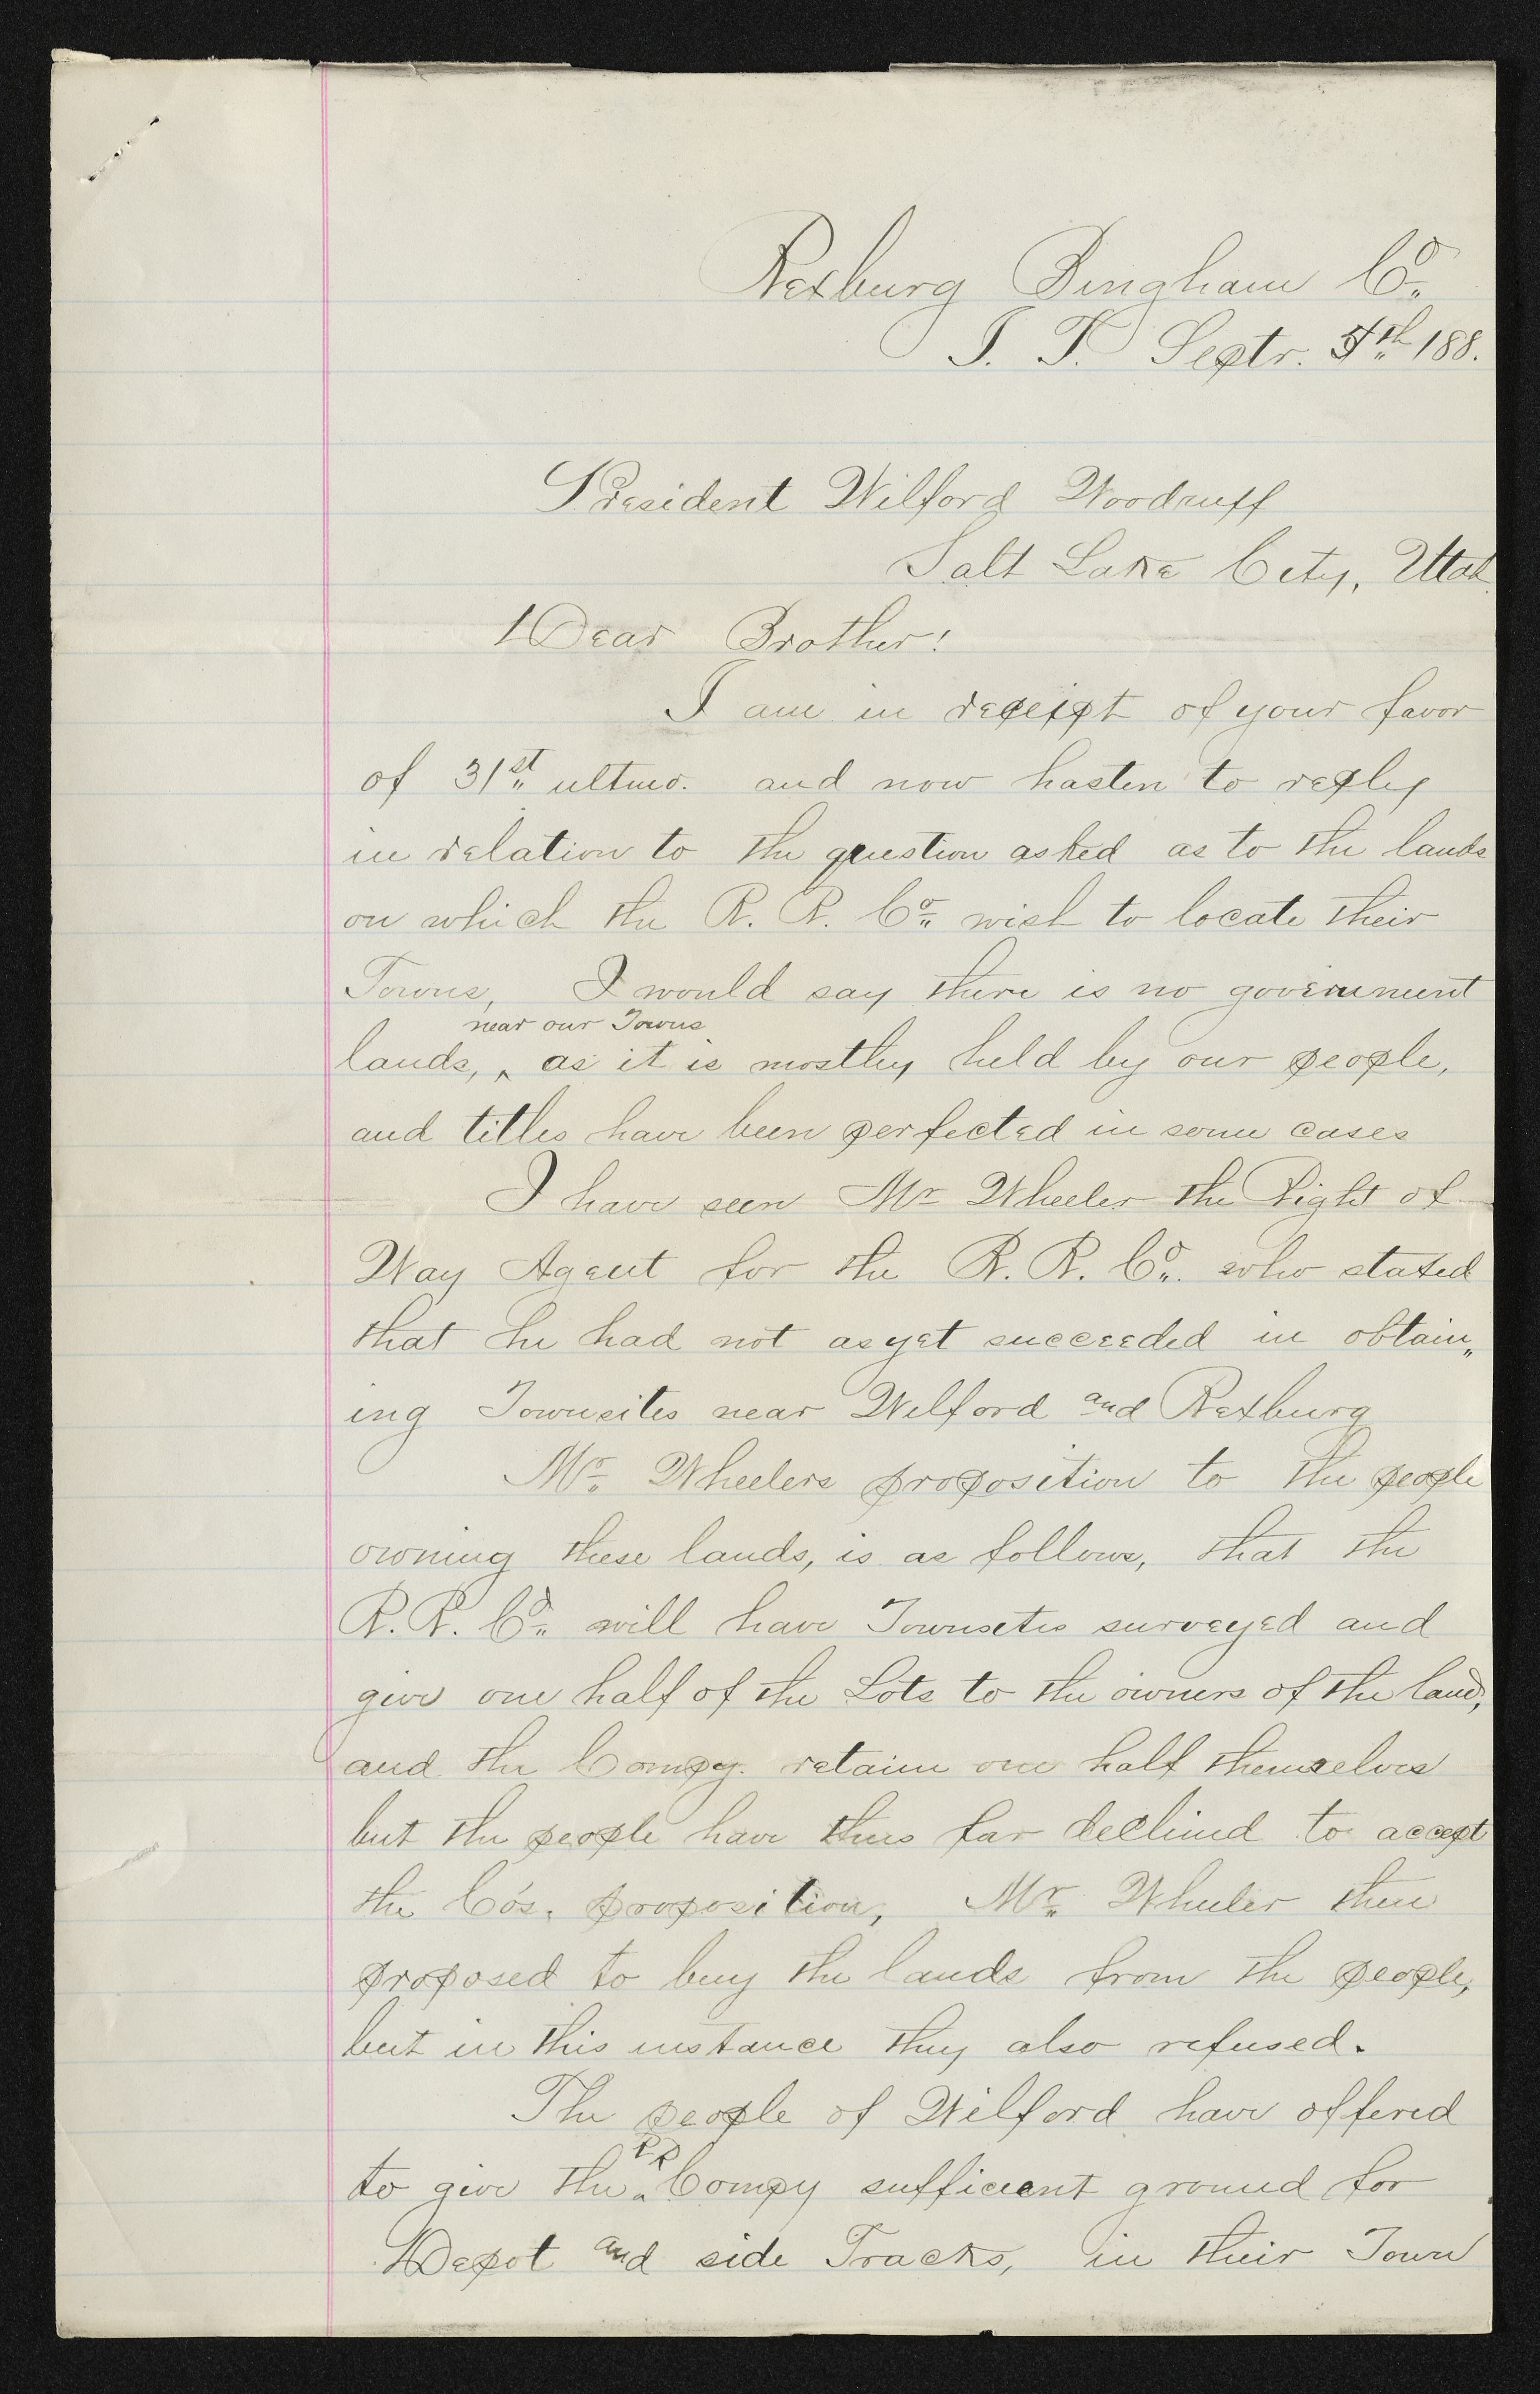 Rexburg Bingham Co.
I. T. Septr. 5th 188.
President Wilford Woodruff
Salt Lake City, Utah
Dear Brother!
I am in receipt of your favor
of 31st ultmo. and now hasten to reply
in relation to the question asked as to the lands
on which the R. R. Co. wish to locate their
Towns, I would say there is no government
near our Towns
lands, ^ as it is mostly held by our people,
and titles have been perfected in some cases
I have seen Mr Wheeler the Right of
Way Agent for the R. R. Co. who stated
that he had not as yet succeeded in obtain„
ing Townsites near Wilford and Rexburg
Mr. Wheelers proposition to the people
owning these lands, is as follows, that the
R. R. Co. will have Townsites surveyed and
give one half of the Lots to the owners of the land,
and the Compy. retain one half themselves
but the people have thus far declined to accept
the Co's. proposition, Mr. Wheeler then
proposed to buy the lands from the people,
but in this instance they also refused.
The people of Wilford have offered
RR
to give the ^ Compy sufficient ground for
Depot and side Tracks, in their Town